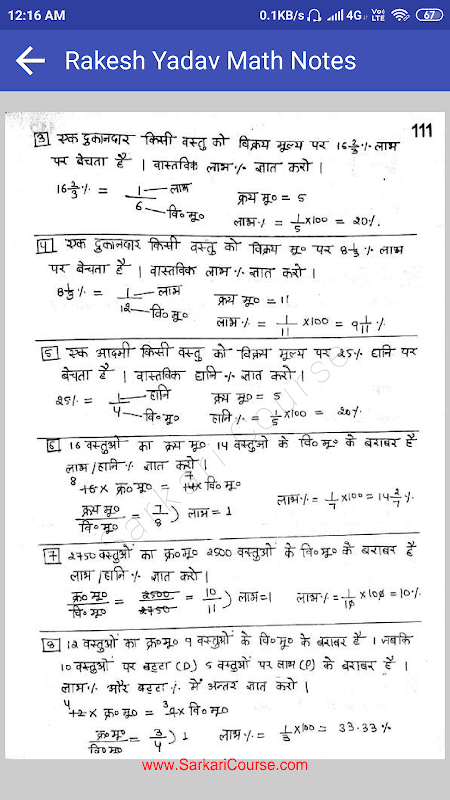 12:16 AM 0.1KB/s 4G VoLTE 67
Rakesh Yadav Math Notes
111
3 एक दुकानदार किसी वस्तु को विक्रय मूल्य पर 16 2/3 % लाभ
पर बेचता है । वास्तविक लाभ % ज्ञात करो ।
16 2/3 % = 1/6 लाभ वि॰मू॰ क्रय मू॰ = 5
लाभ % = 1/5 ×100 = 20%.
4 एक दुकानदार किसी वस्तु को विक्रय मू॰ पर 8 1/3 % लाभ
पर बेचता है । वास्तविक लाभ % ज्ञात करो ।
8 1/3 % = 1/12 लाभ वि॰मू॰ क्रय मू॰ = 11
लाभ % = 1/11 ×100 = 9 1/11 %
5 एक आदमी किसी वस्तु को विक्रय मूल्य पर 25% हानि पर
बेचता है । वास्तविक हानि % ज्ञात करो ।
25% = 1/4 हानि वि॰मू॰ क्रय मू॰ = 5
हानि % = 1/5 ×100 = 20%
6 16 वस्तुओं का क्रय मू॰ 14 वस्तुओं के वि॰मू॰ के बराबर है
लाभ/हानि % ज्ञात करो ।
8 16 × क्र॰मू॰ = 7 14 × वि॰मू॰
क्रय मू॰/वि॰मू॰ = 7/8 ) लाभ = 1 लाभ % = 1/7 ×100 = 14 2/7 %
7 2750 वस्तुओं का क्र॰मू॰ 2500 वस्तुओं के वि॰मू॰ के बराबर है
लाभ/हानि % ज्ञात करो ।
क्र॰मू॰/वि॰मू॰ = 2500/2750 = 10/11 ) लाभ=1 लाभ % = 1/10 ×100 = 10%
8 12 वस्तुओं का क्र॰मू॰ 9 वस्तुओं के वि॰मू॰ के बराबर है । जबकि
10 वस्तुओं पर बट्टा (D) 5 वस्तुओं पर लाभ (P) के बराबर है ।
लाभ % और बट्टा % में अन्तर ज्ञात करो ।
4 12 × क्र॰मू॰ = 3 9 × वि॰मू॰
क्र॰मू॰/वि॰मू॰ = 3/4 ) 1 लाभ % = 1/3 ×100 = 33.33%
Sarkari Course
www.SarkariCourse.com